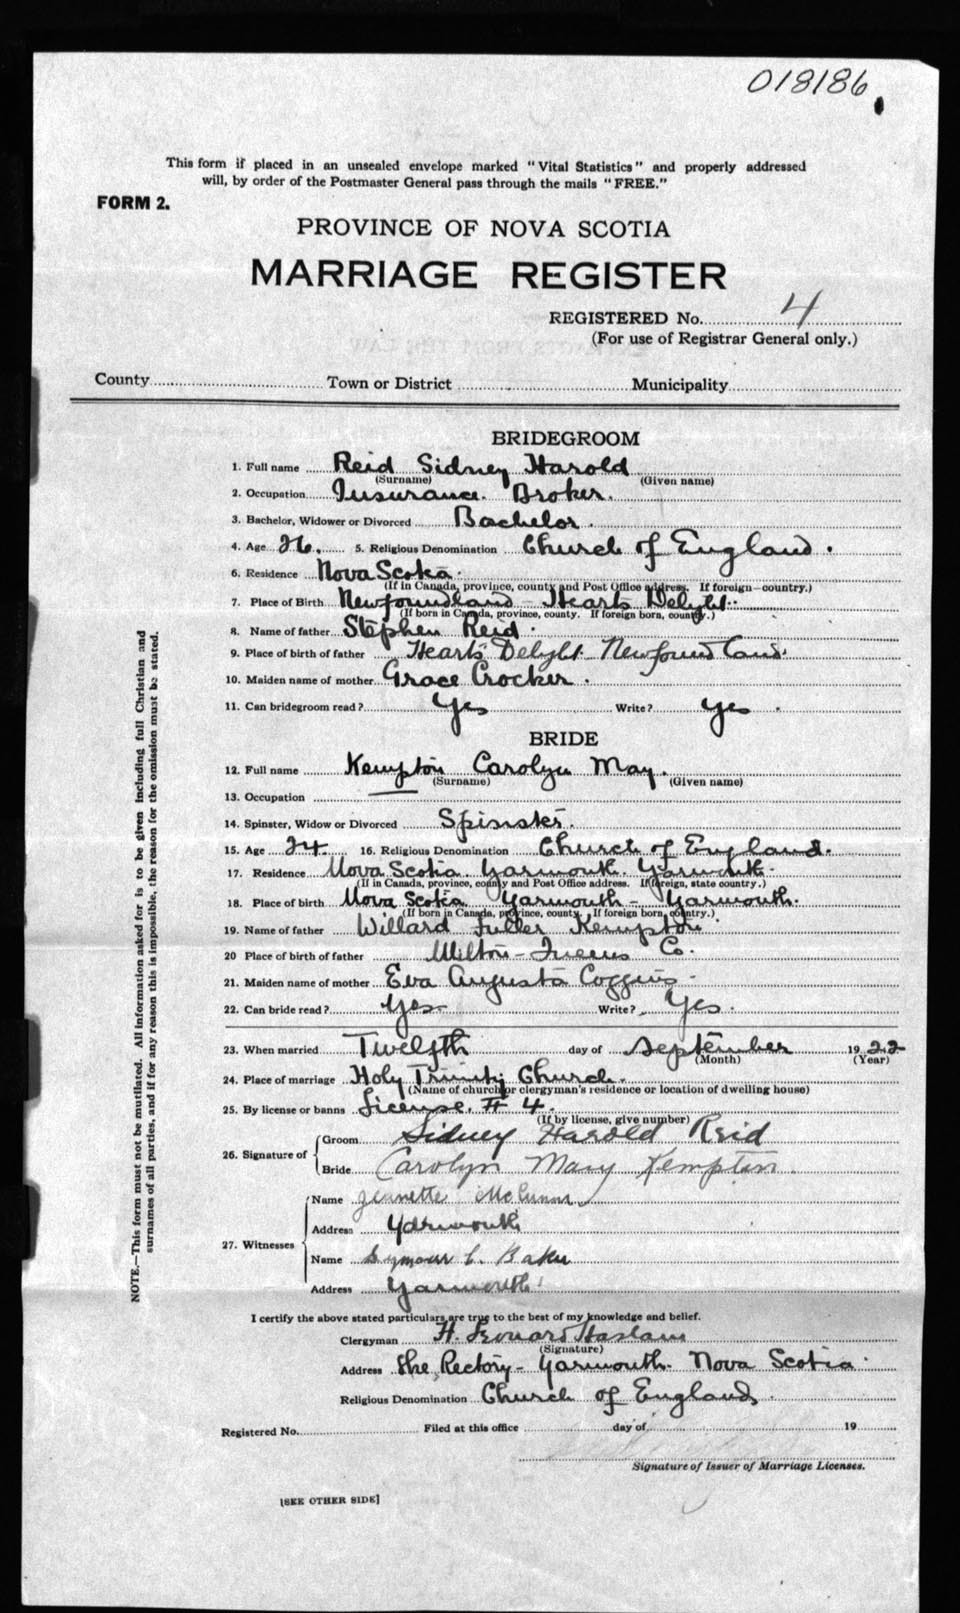 018186
This form if placed in an unsealed envelope marked "Vital Statistics" and properly addressed
will, by order of the Postmaster General pass through the mails "FREE."
FORM 2.
PROVINCE OF NOVA SCOTIA
MARRIAGE REGISTER
REGISTERED No. 4
(For use of Registrar General only.)
County Town or District Municipality
BRIDEGROOM
1. Full name Reid Sidney Harold
(Surname) (Given name)
2. Occupation Insurance Broker.
3. Bachelor, Widower or Divorced Bachelor.
4. Age 26. 5. Religious Denomination Church of England.
6. Residence Nova Scotia.
(If in Canada, province, county and Post Office address. If foreign—country.)
7. Place of Birth Newfoundland - Hearts Delight.
(If born in Canada, province, county. If foreign born, country.)
8. Name of father Stephen Reid.
9. Place of birth of father Heart's Delight Newfoundland.
10. Maiden name of mother Grace Crocker.
11. Can bridegroom read? Yes Write? Yes.
BRIDE
12. Full name Kempton Carolyn May.
(Surname) (Given name)
13. Occupation
14. Spinster, Widow or Divorced Spinster.
15. Age 24 16. Religious Denomination Church of England.
17. Residence Nova Scotia Yarmouth. Yarmouth.
(If in Canada, province, county and Post Office address. If foreign, state country.)
18. Place of birth Nova Scotia Yarmouth - Yarmouth.
(If born in Canada, province, county. If foreign born, country.)
19. Name of father Willard Fuller Kempton
20 Place of birth of father Milton - Queens Co.
21. Maiden name of mother Eva Augusta Coggins.
22. Can bride read? Yes. Write? Yes.
23. When married Twelfth day of September 1922
(Month) (Year)
24. Place of marriage Holy Trinity Church.
(Name of church or clergyman's residence or location of dwelling house)
25. By license or banns License. # 4.
(If by license, give number)
26. Signature of Groom Sidney Harold Reid
Bride Carolyn May Kempton.
27. Witnesses Name Jeanette
Address Yarmouth
Name Seymour C. Baker
Address Yarmouth
I certify the above stated particulars are true to the best of my knowledge and belief.
Clergyman H. Leonard Haslam
(Signature)
Address The Rectory - Yarmouth. Nova Scotia.
Religious Denomination Church of England.
Registered No. Filed at this office day of 19
Signature of Issuer of Marriage Licenses.
[SEE OTHER SIDE]
NOTE.—This form must not be mutilated. All information asked for is to be given including full Christian and
surnames of all parties, and if for any reason this is impossible, the reason for the omission must be stated.